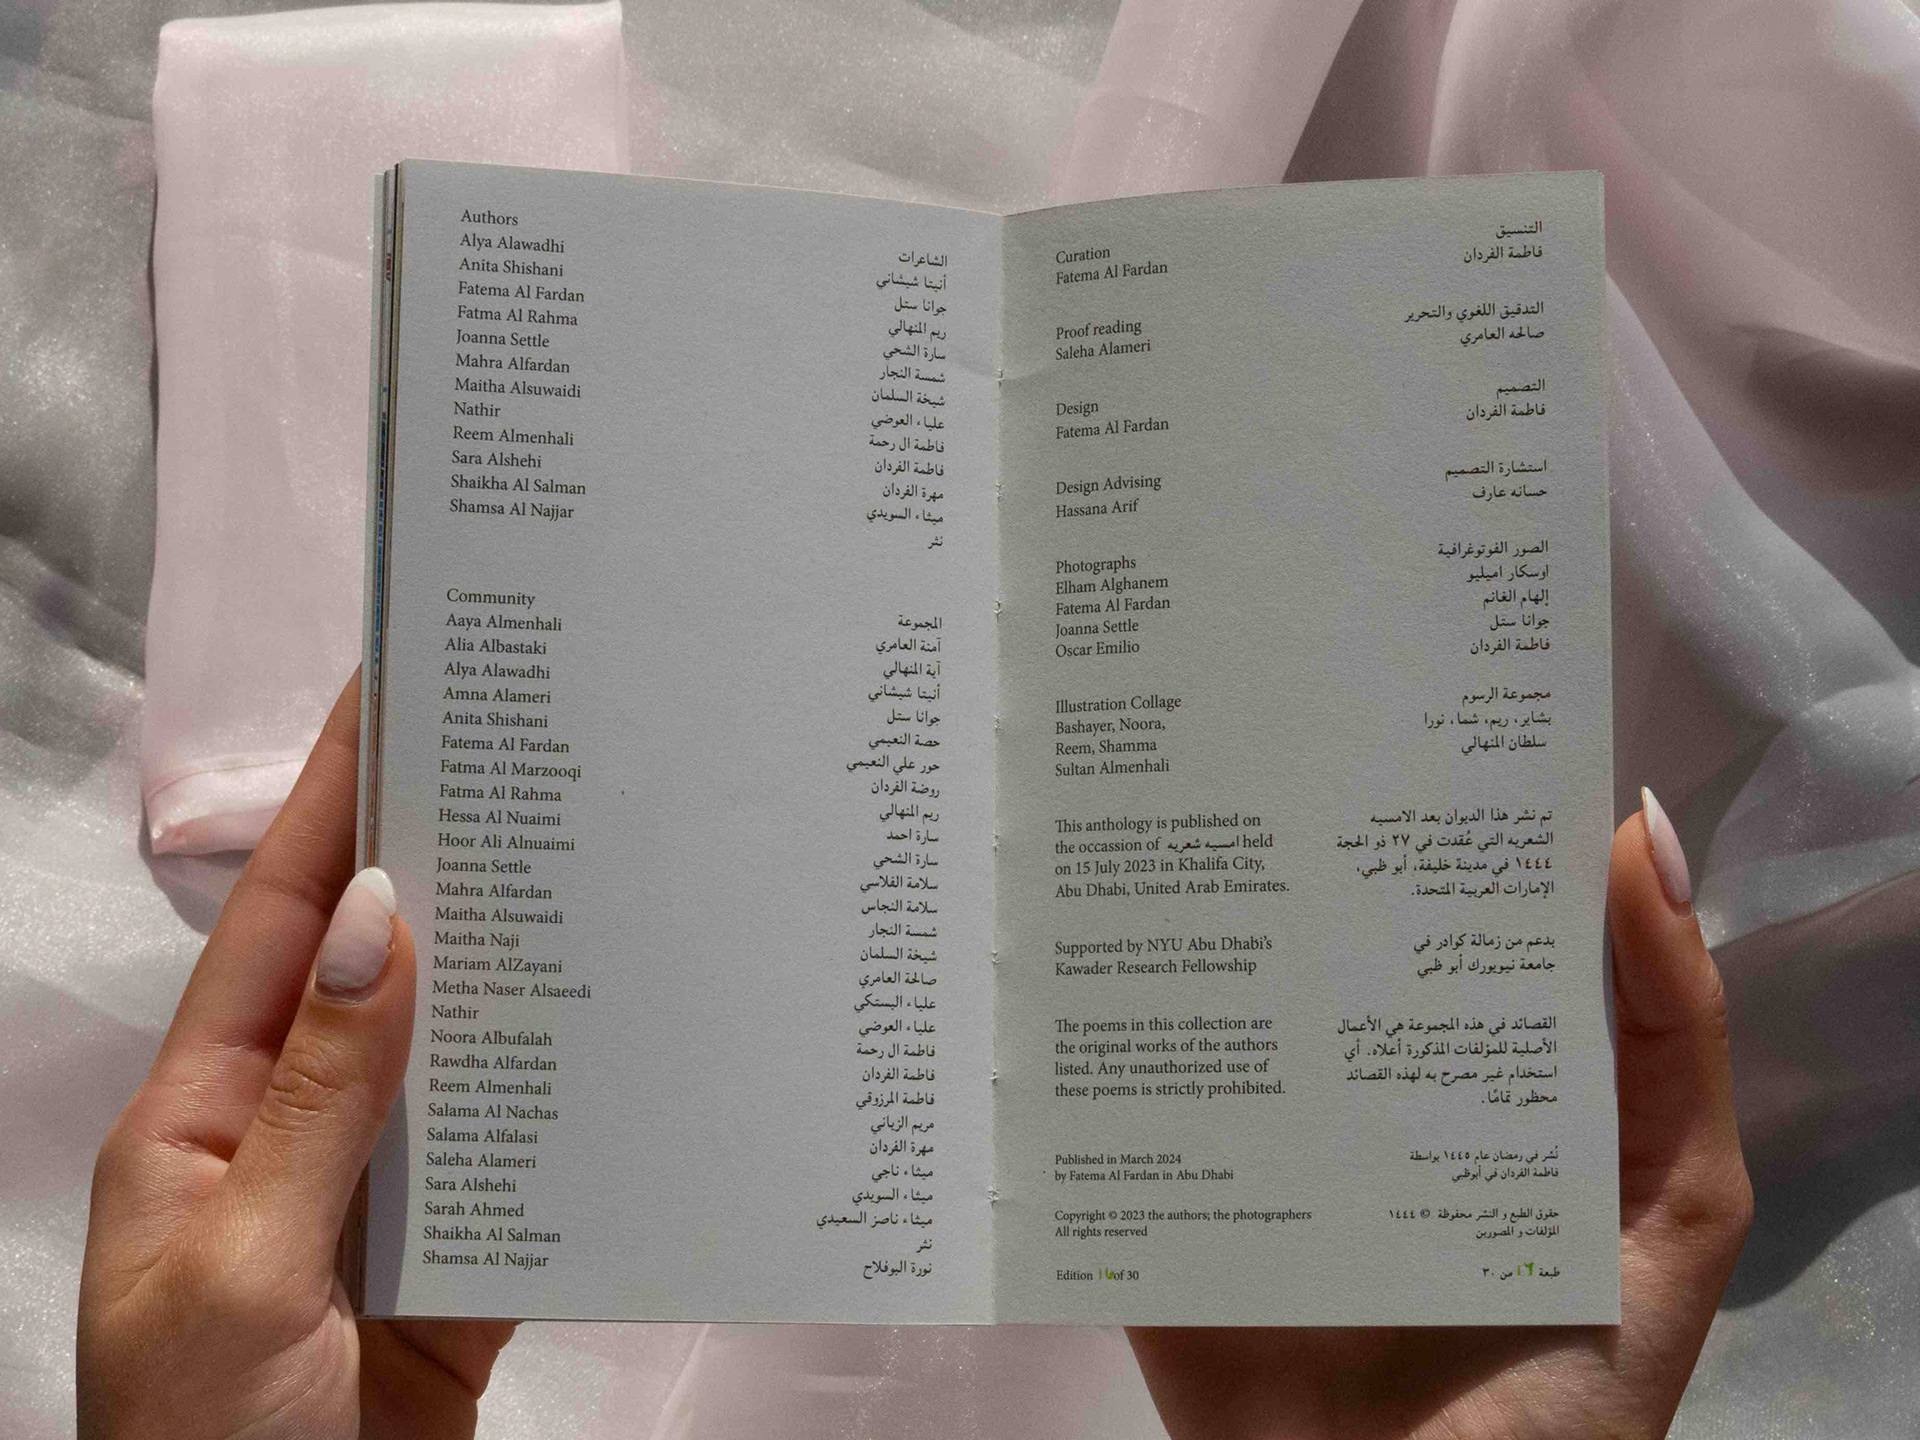 Authors
Alya Alawadhi
Anita Shishani
Fatema Al Fardan
Fatma Al Rahma
Joanna Settle
Mahra Alfardan
Maitha Alsuwaidi
Nathir
Reem Almenhali
Sara Alshehi
Shaikha Al Salman
Shamsa Al Najjar
الشاعرات
أنيتا شيشاني
جوانا ستل
ريم المنهالي
سارة الشحي
شمسة النجار
شيخة السلمان
علياء العوضي
فاطمة ال رحمة
فاطمة الفردان
مهرة الفردان
ميثاء السويدي
نثر
Community
Aaya Almenhali
Alia Albastaki
Alya Alawadhi
Amna Alameri
Anita Shishani
Fatema Al Fardan
Fatma Al Marzooqi
Fatma Al Rahma
Hessa Al Nuaimi
Hoor Ali Alnuaimi
Joanna Settle
Mahra Alfardan
Maitha Alsuwaidi
Maitha Naji
Mariam AlZayani
Metha Naser Alsaeedi
Nathir
Noora Albufalah
Rawdha Alfardan
Reem Almenhali
Salama Al Nachas
Salama Alfalasi
Saleha Alameri
Sara Alshehi
Sarah Ahmed
Shaikha Al Salman
Shamsa Al Najjar
المجموعة
آمنة العامري
آية المنهالي
أنيتا شيشاني
جوانا ستل
حصة النعيمي
حور علي النعيمي
روضة الفردان
ريم المنهالي
سارة احمد
سارة الشحي
سلامة الفلاسي
سلامة النحاس
شمسة النجار
شيخة السلمان
صالحة العامري
علياء البستكي
علياء العوضي
فاطمة ال رحمة
فاطمة الفردان
فاطمة المرزوقي
مريم الزياني
مهرة الفردان
ميثاء ناجي
ميثاء السويدي
ميثاء ناصر السعيدي
نثر
نورة البوفلاح
Curation
Fatema Al Fardan
التنسيق
فاطمة الفردان
Proof reading
Saleha Alameri
التدقيق اللغوي والتحرير
صالحه العامري
Design
Fatema Al Fardan
التصميم
فاطمة الفردان
Design Advising
Hassana Arif
استشارة التصميم
حسانه عارف
Photographs
Elham Alghanem
Fatema Al Fardan
Joanna Settle
Oscar Emilio
الصور الفوتوغرافية
اوسكار اميليو
إلهام الغانم
جوانا ستل
فاطمة الفردان
Illustration Collage
Bashayer, Noora,
Reem, Shamma
Sultan Almenhali
مجموعة الرسوم
بشاير، ريم، شما، نورا
سلطان المنهالي
This anthology is published on
the occassion of امسيه شعريه held
on 15 July 2023 in Khalifa City,
Abu Dhabi, United Arab Emirates.
تم نشر هذا الديوان بعد الامسيه
الشعريه التي عُقدت في ٢٧ ذو الحجة
١٤٤٤ في مدينة خليفة، أبو ظبي،
الإمارات العربية المتحدة.
Supported by NYU Abu Dhabi's
Kawader Research Fellowship
بدعم من زمالة كوادر في
جامعة نيويورك أبو ظبي
The poems in this collection are
the original works of the authors
listed. Any unauthorized use of
these poems is strictly prohibited.
القصائد في هذه المجموعة هي الأعمال
الأصلية للمؤلفات المذكورة أعلاه. أي
استخدام غير مصرح به لهذه القصائد
محظور تمامًا.
Published in March 2024
by Fatema Al Fardan in Abu Dhabi
نُشر في رمضان عام ١٤٤٥ بواسطة
فاطمة الفردان في أبوظبي
Copyright © 2023 the authors; the photographers
All rights reserved
حقوق الطبع و النشر محفوظة © ١٤٤٤
المؤلفات و المصورين
Edition 16 of 30
طبعة ١٦ من ٣٠